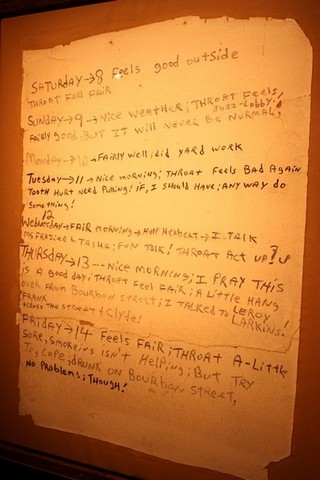 SATURDAY→8 Feels good outside
THROAT Feel FAIR
SUNDAY→9→Nice weather; THROAT Feels,
Fairly good, BUT IT will Never Be NORMAL,
Buzz-Lobby!
Monday→10→FAIRly well; did YARD WORK
Tuesday→11→Nice morning; THROAT Feels BAD Again
Tooth Hurt Need Pulling! IF, I Should Have; ANY WAY do
Something!
12
Wednesday→FAIR morning→Hell Hesheat→I. TALK
Ms FRAZIER & TASHA; FUN TALK! THROAT Act up?
THURSDAY→13---Nice morning; I PRAY THIS
is A good day; THROAT Feel FAIR; A little HANG
over From Bourbon street; I TALKED to LEROY !
LARKINS.
FRANK
ACROSS THE STREET & Clyde!
FRIDAY→14 Feels FAIR; THROAT A-Little
Sore, smokeing isn't Helping; But TRY
To, Cope; DRUNK ON BOURBAN STREET,
No PROBlems; THOUGH!